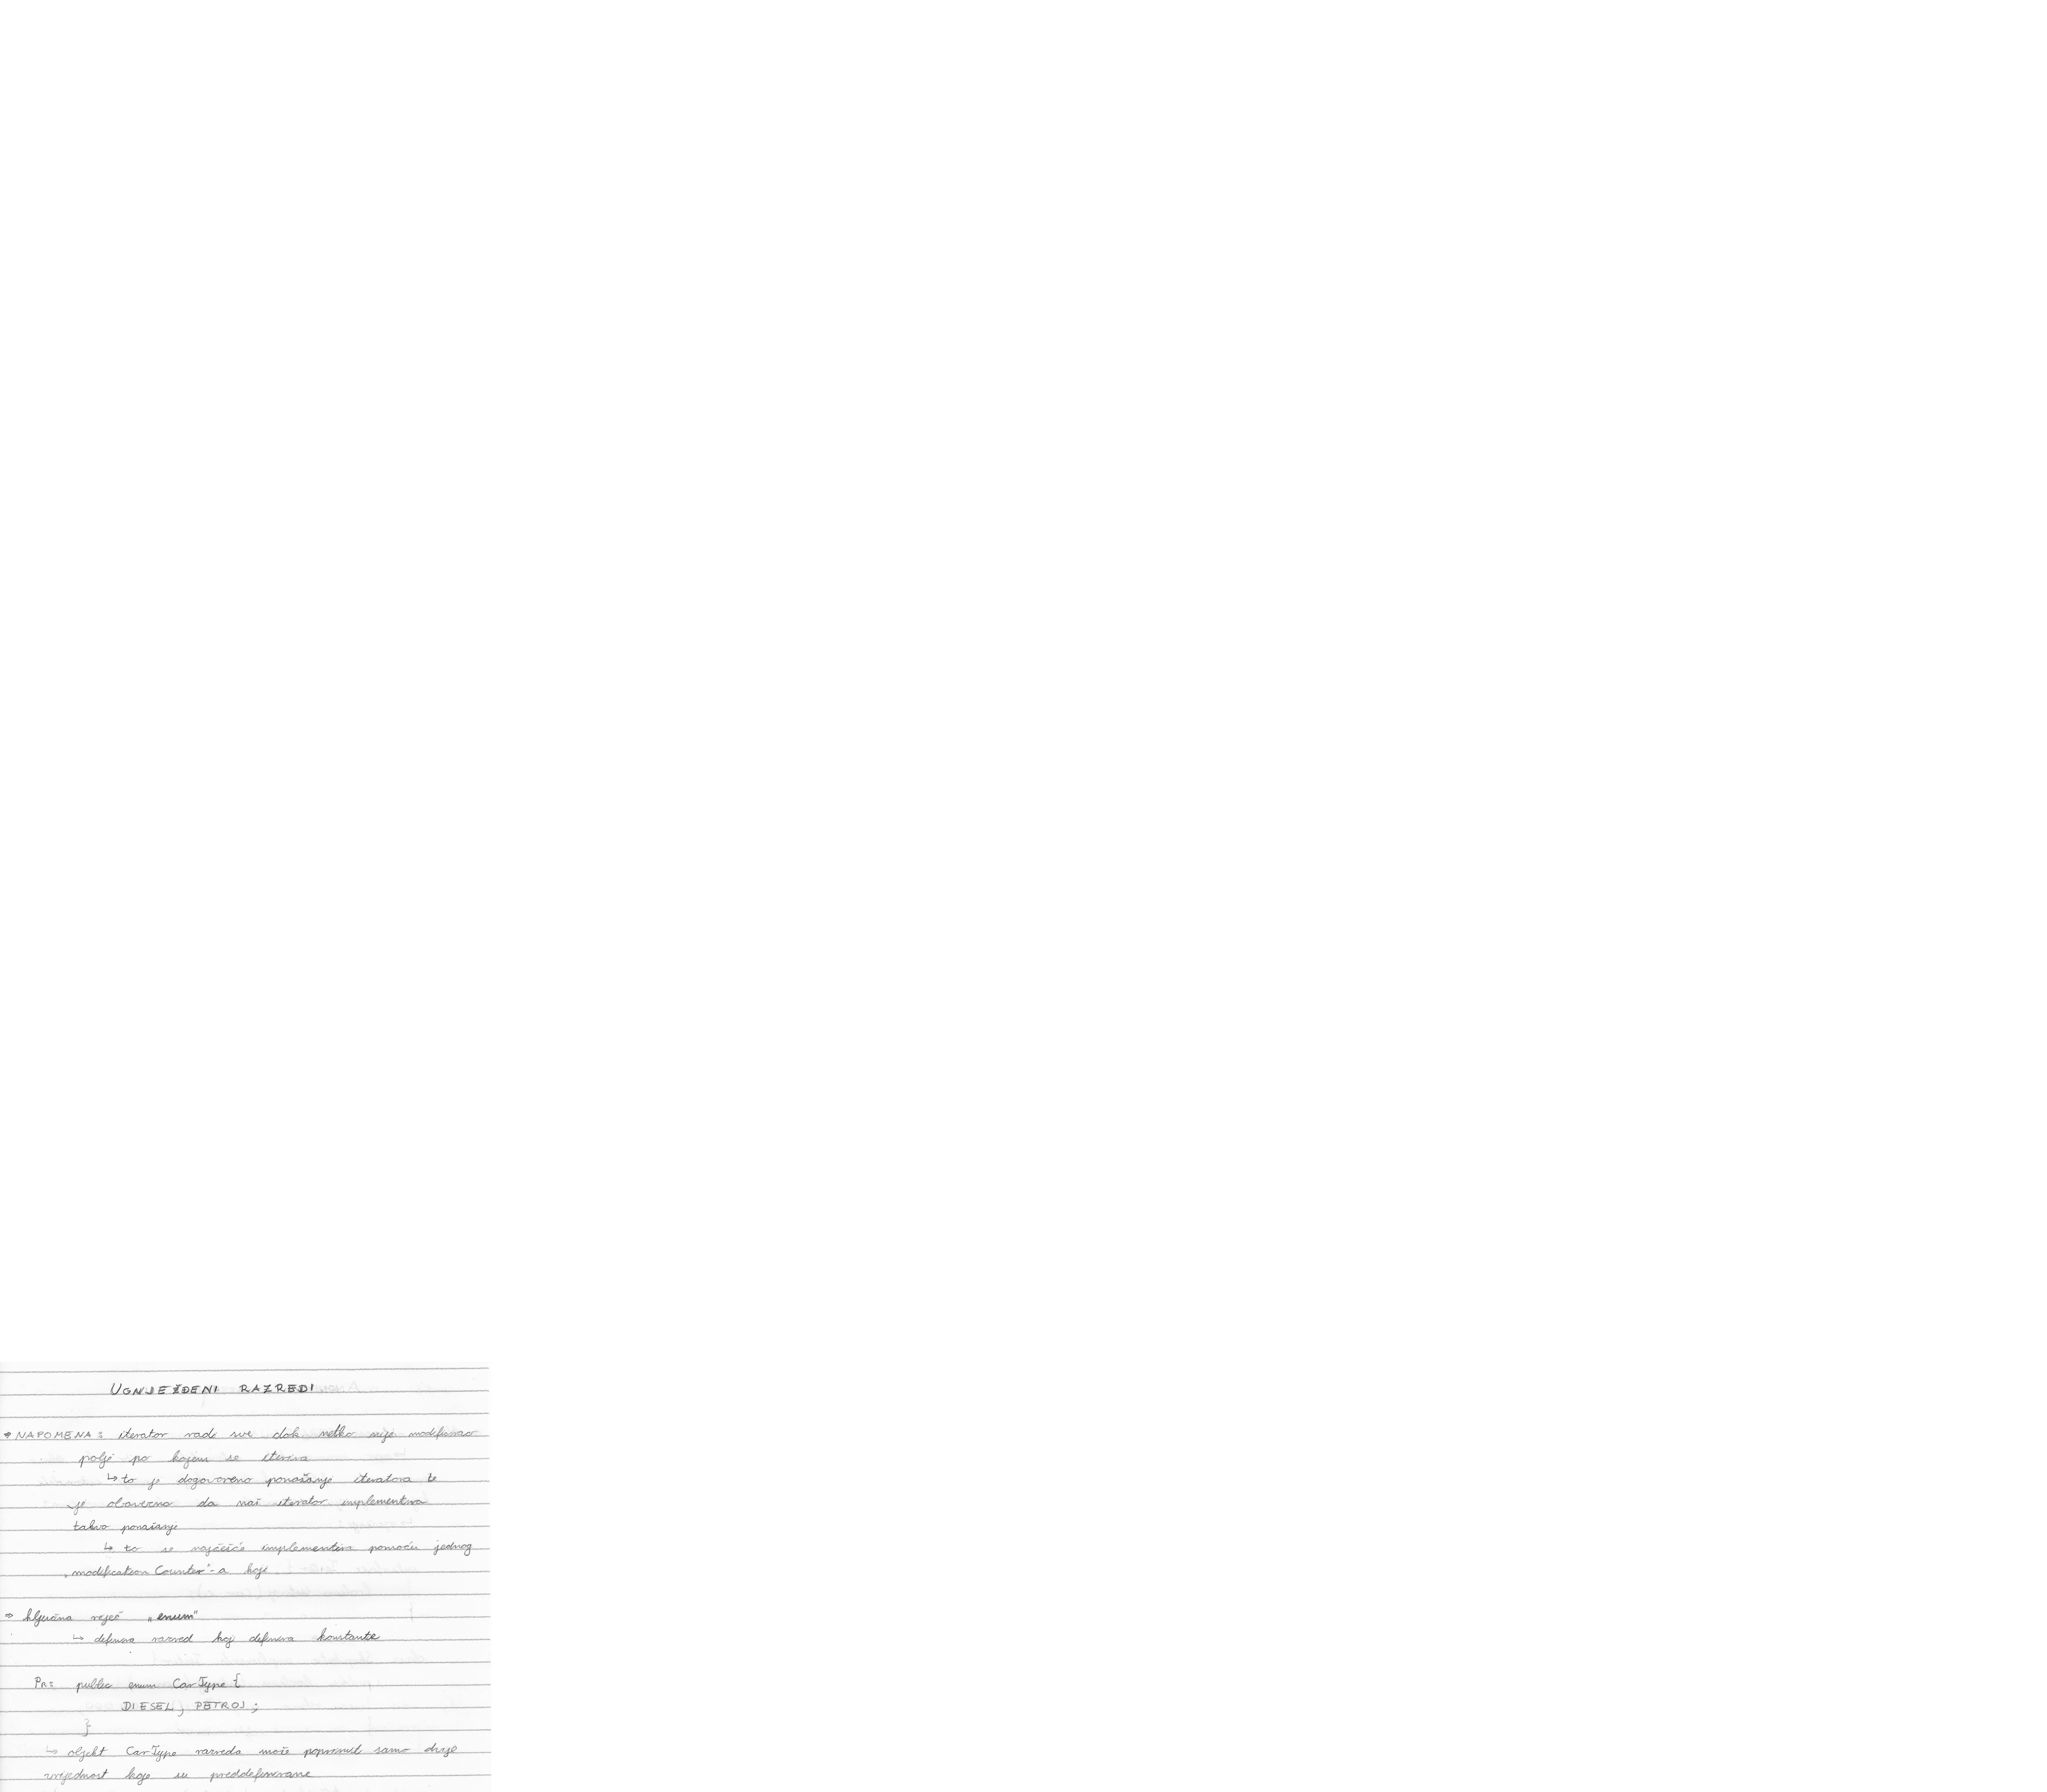 UGNJEŽĐENI RAZREDI
⇒ NAPOMENA: iterator radi sve dok netko nije modificirao
polje po kojem se iterira
↳ to je dogovoreno ponašanje iteratora te
je obavezno da naš iterator implementira
takvo ponašanje
↳ to se najčešće implementira pomoću jednog
„modification Counter"-a koji
⇒ ključna riječ „enum"
↳ definira razred koji definira konstante
Pr: public enum CarType {
DIESEL, PETROJ;
}
↳ objekt CarType razreda može poprimit samo dvije
vrijednost koje su preddefinirane